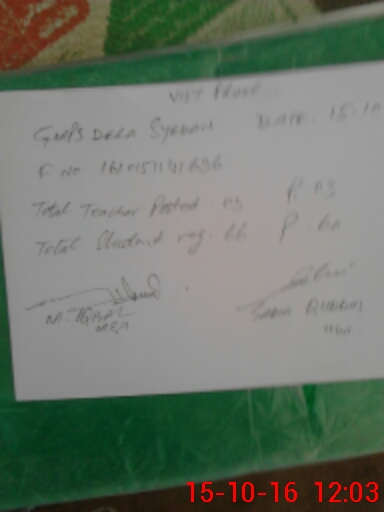 VIST PROOF
GMPS DERA SYEDAN DATE: 15-10
F NO. 1610151141636
Total Teacher Posted. 03 P. 03
Total Student reg. 66 P. 60
M. IQBAL
MEA
HM
15-10-16 12:03